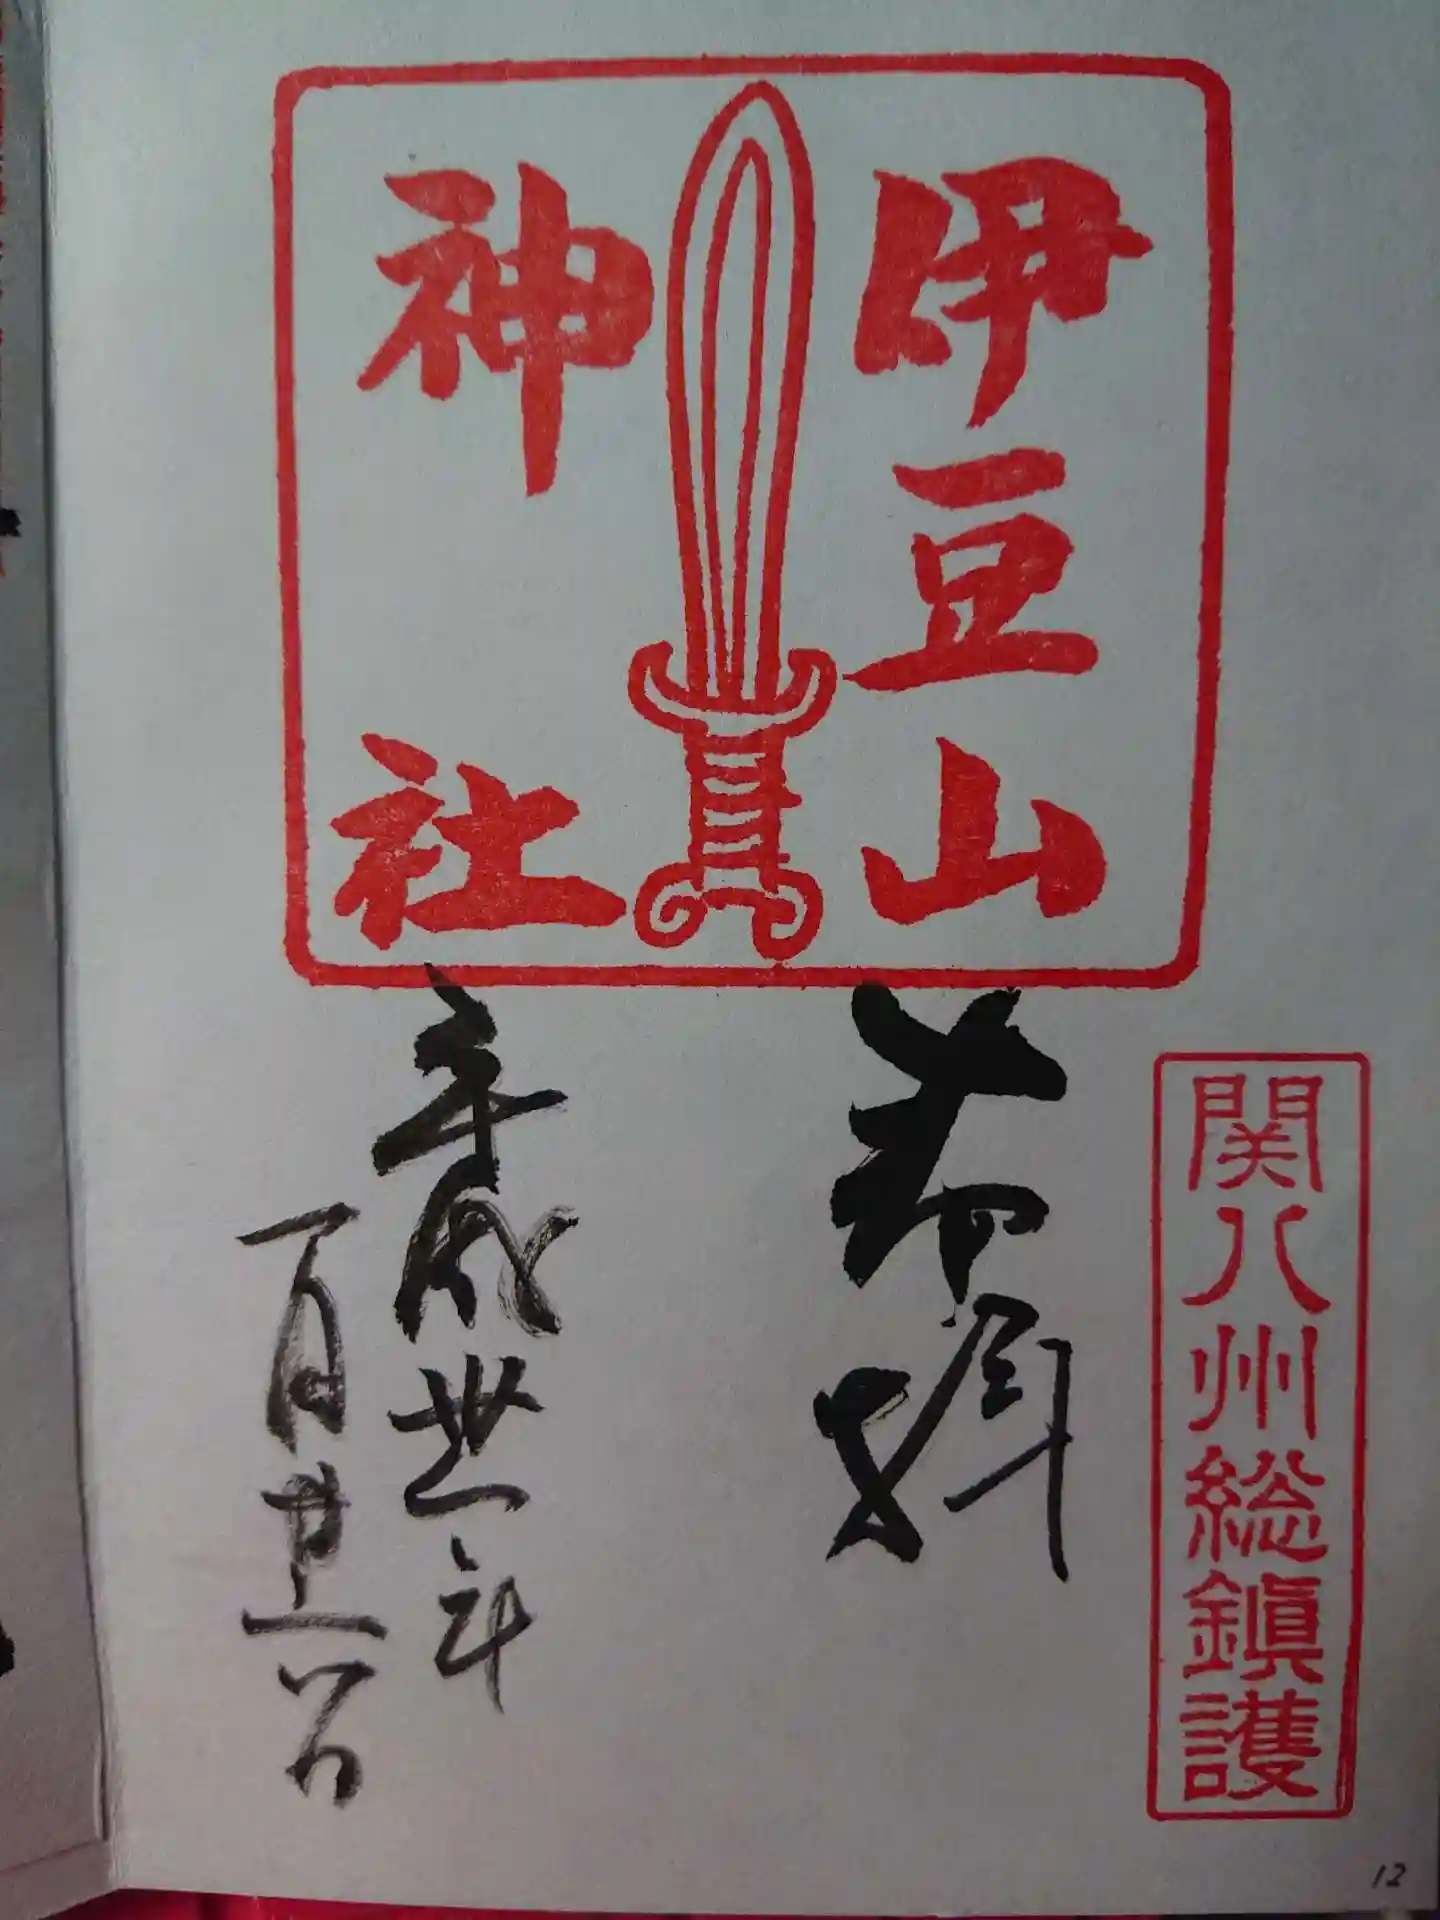 関八州総鎮護
伊豆山
神社
奉拝
平成卅一年
一月廿六日
12